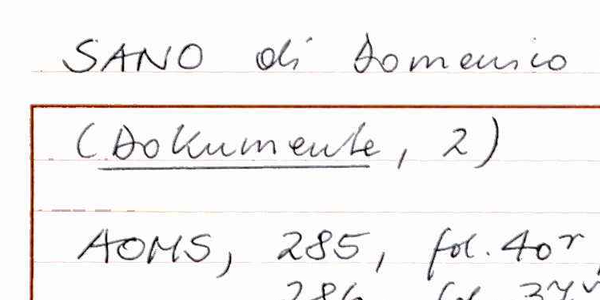 SANO di Domenico
(Dokumente, 2)
AOMS, 285, fol. 40r,
286, fol. 37v